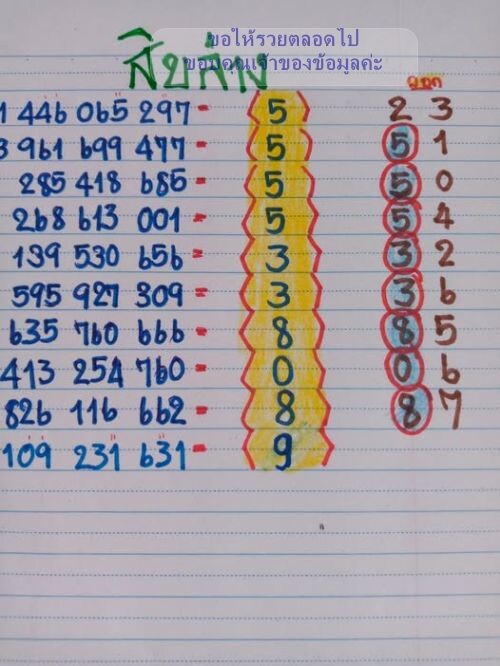 ขอให้รวยตลอดไป
ขอบคุณเจ้าของข้อมูลค่ะ
สิบล่าง
ออก
1 446 065 297 = 5 2 3
3 961 699 477 = 5 5 1
285 418 685 = 5 5 0
268 613 001 = 5 5 4
139 530 656 = 3 3 2
595 927 309 = 3 3 6
635 760 666 = 8 8 5
413 254 760 = 0 0 6
826 116 662 = 8 8 7
109 231 631 = 9